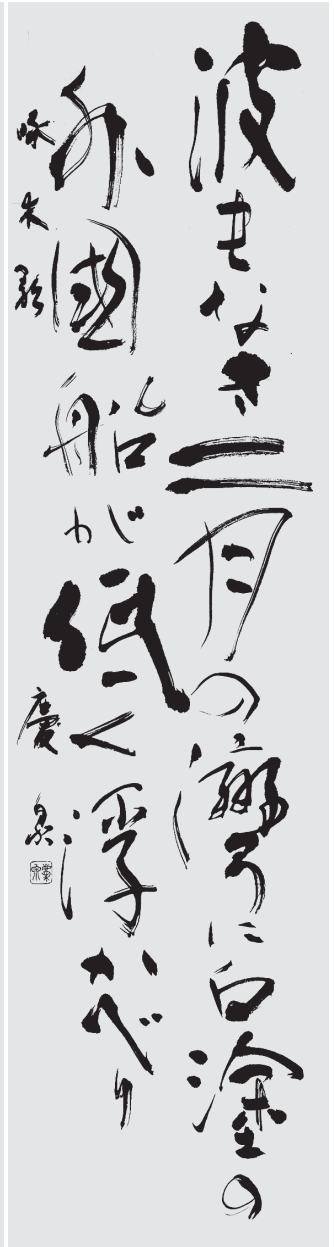 波もなき二月の灣に白塗の
外國船が低く浮かべり
啄木歌 慶泉